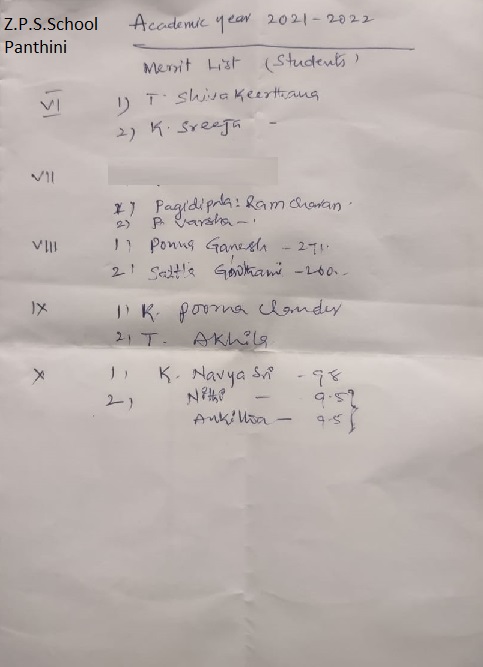 Z.P.S.School
Panthini
Academic year 2021-2022
Merit List (Students)
VI 1) T. Shiva Keerthana
2) K. Sreeja -
VII
1) Pagidipala: Ram Charan.
2) P. Varsha -
VIII 1) Ponna Ganesh - 271.
2) Sattla Gowthami - 260.
IX 1) K. Poorna Chander
2) T. Akhila
X 1) K. Navya Sri - 9.8
2) Nithi - 9.5}
Ankitha - 9.5}